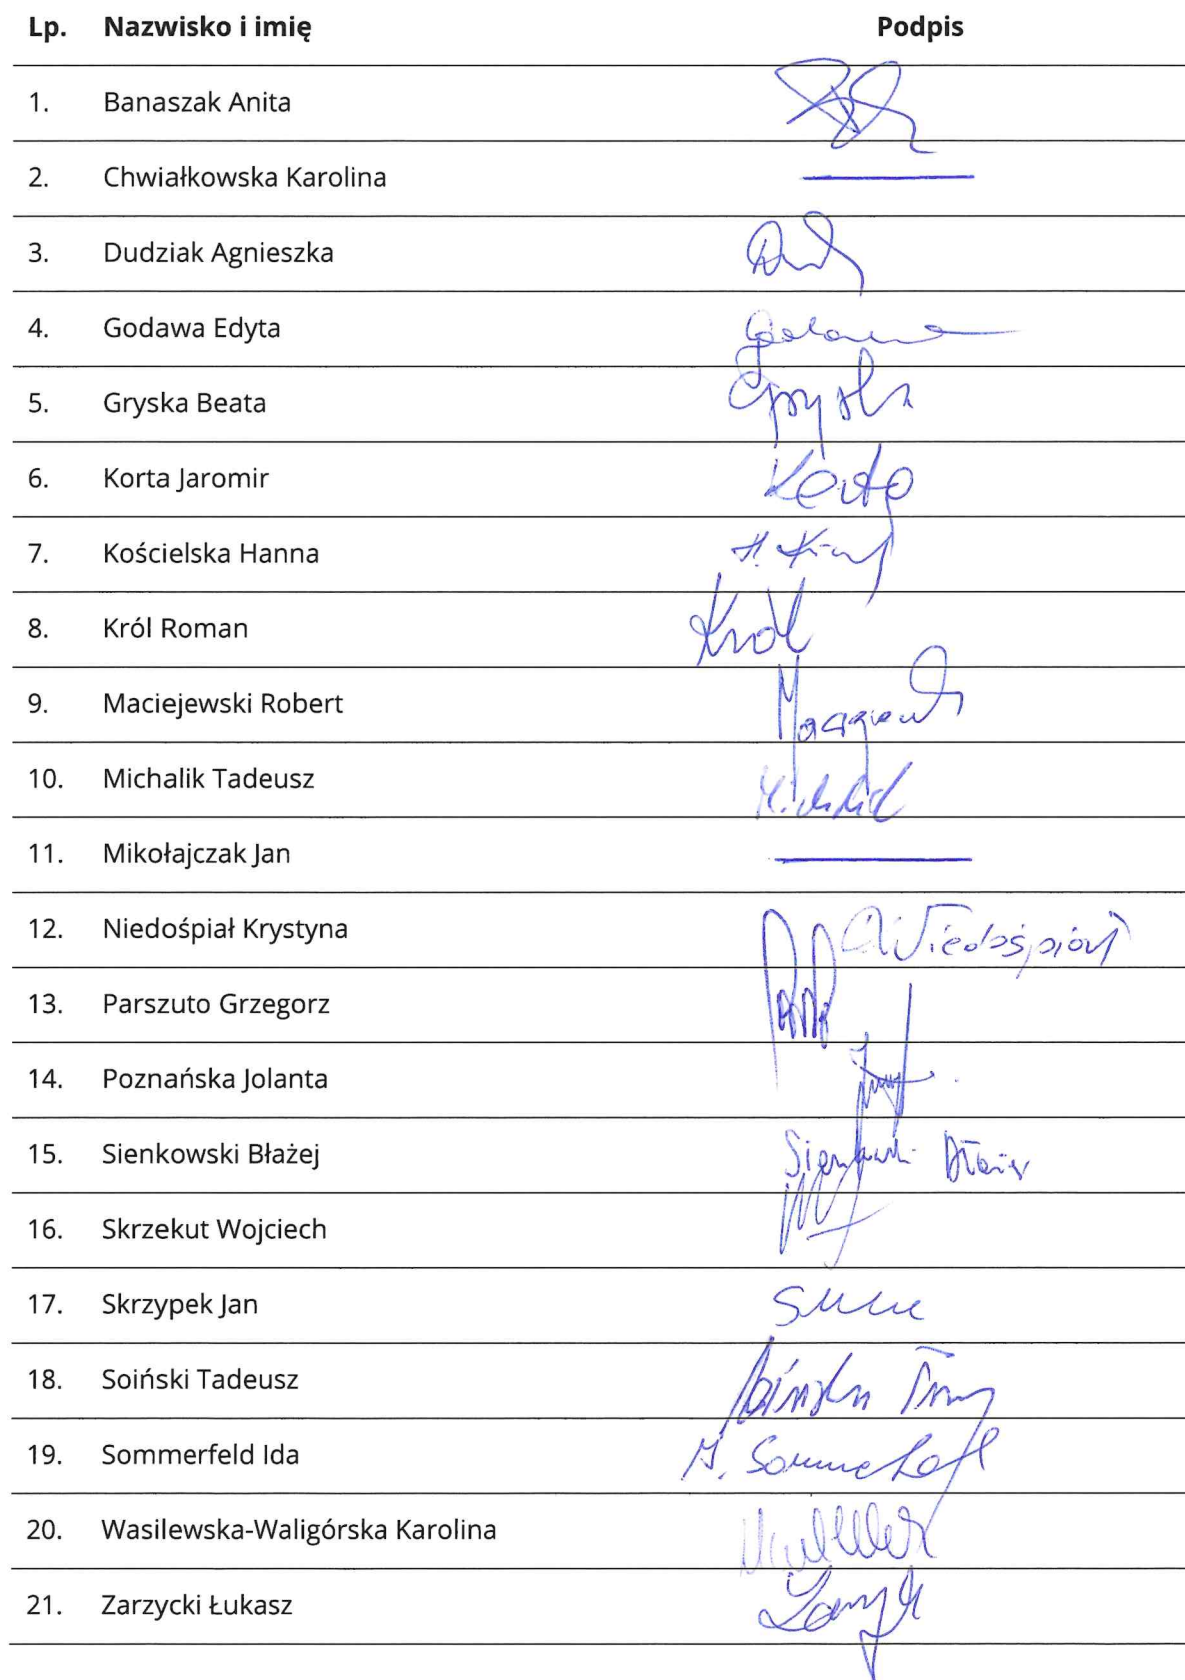 Lp. Nazwisko i imię Podpis
1. Banaszak Anita
2. Chwiałkowska Karolina
3. Dudziak Agnieszka
4. Godawa Edyta
5. Gryska Beata Gryska
6. Korta Jaromir Korta
7. Kościelska Hanna H.
8. Król Roman Król
9. Maciejewski Robert
10. Michalik Tadeusz Michalik
11. Mikołajczak Jan
12. Niedośpiał Krystyna Niedośpiał
13. Parszuto Grzegorz
14. Poznańska Jolanta
15. Sienkowski Błażej Sienkowski Błażej
16. Skrzekut Wojciech
17. Skrzypek Jan
18. Soiński Tadeusz Soiński
19. Sommerfeld Ida I. Sommerfeld
20. Wasilewska-Waligórska Karolina
21. Zarzycki Łukasz